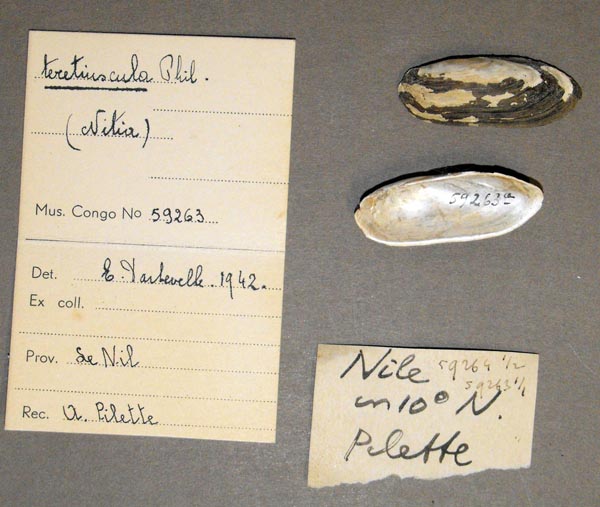 teretiuscula Phil.
(Nitia)
Mus. Congo No 59263
Det. E. Dartevelle. 1942.
Ex coll.
Prov. Le Nil
Rec. A. Pilette
59263a
Nile 59264 1/2
59263 1/1
in 10° N.
Pilette